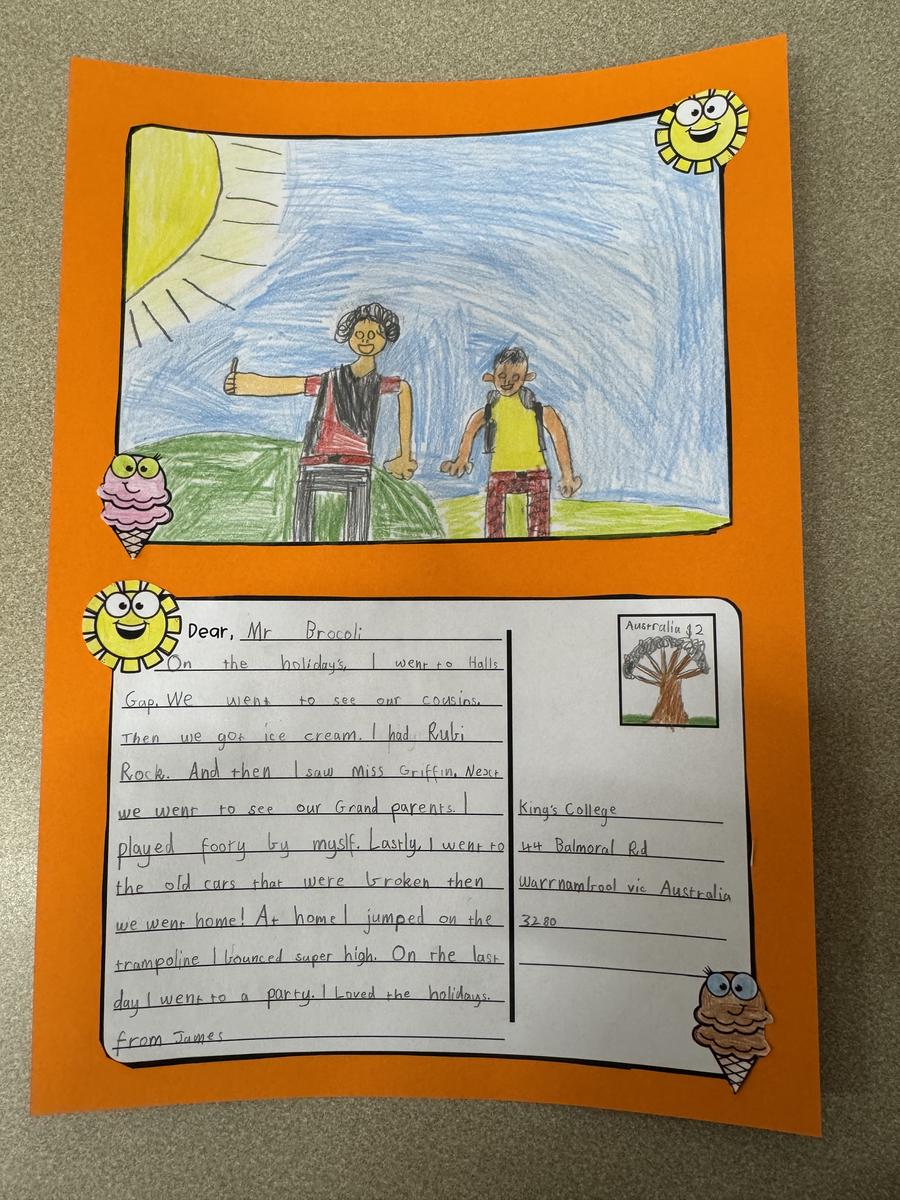 Dear, Mr Brocoli
On the holiday's, I went to Halls
Gap. We went to see our cousins.
Then we got ice cream. I had Rubi
Rock. And then I saw Miss Griffin. Next
we went to see our Grand parents. I
played footy by myslf. Lastly, I went to
the old cars that were broken then
we went home! At home I jumped on the
trampoline I bounced super high. On the last
day I went to a party. I Loved the holidays.
from James
Australia $2
King's College
44 Balmoral Rd
Warrnambool vic Australia
3280